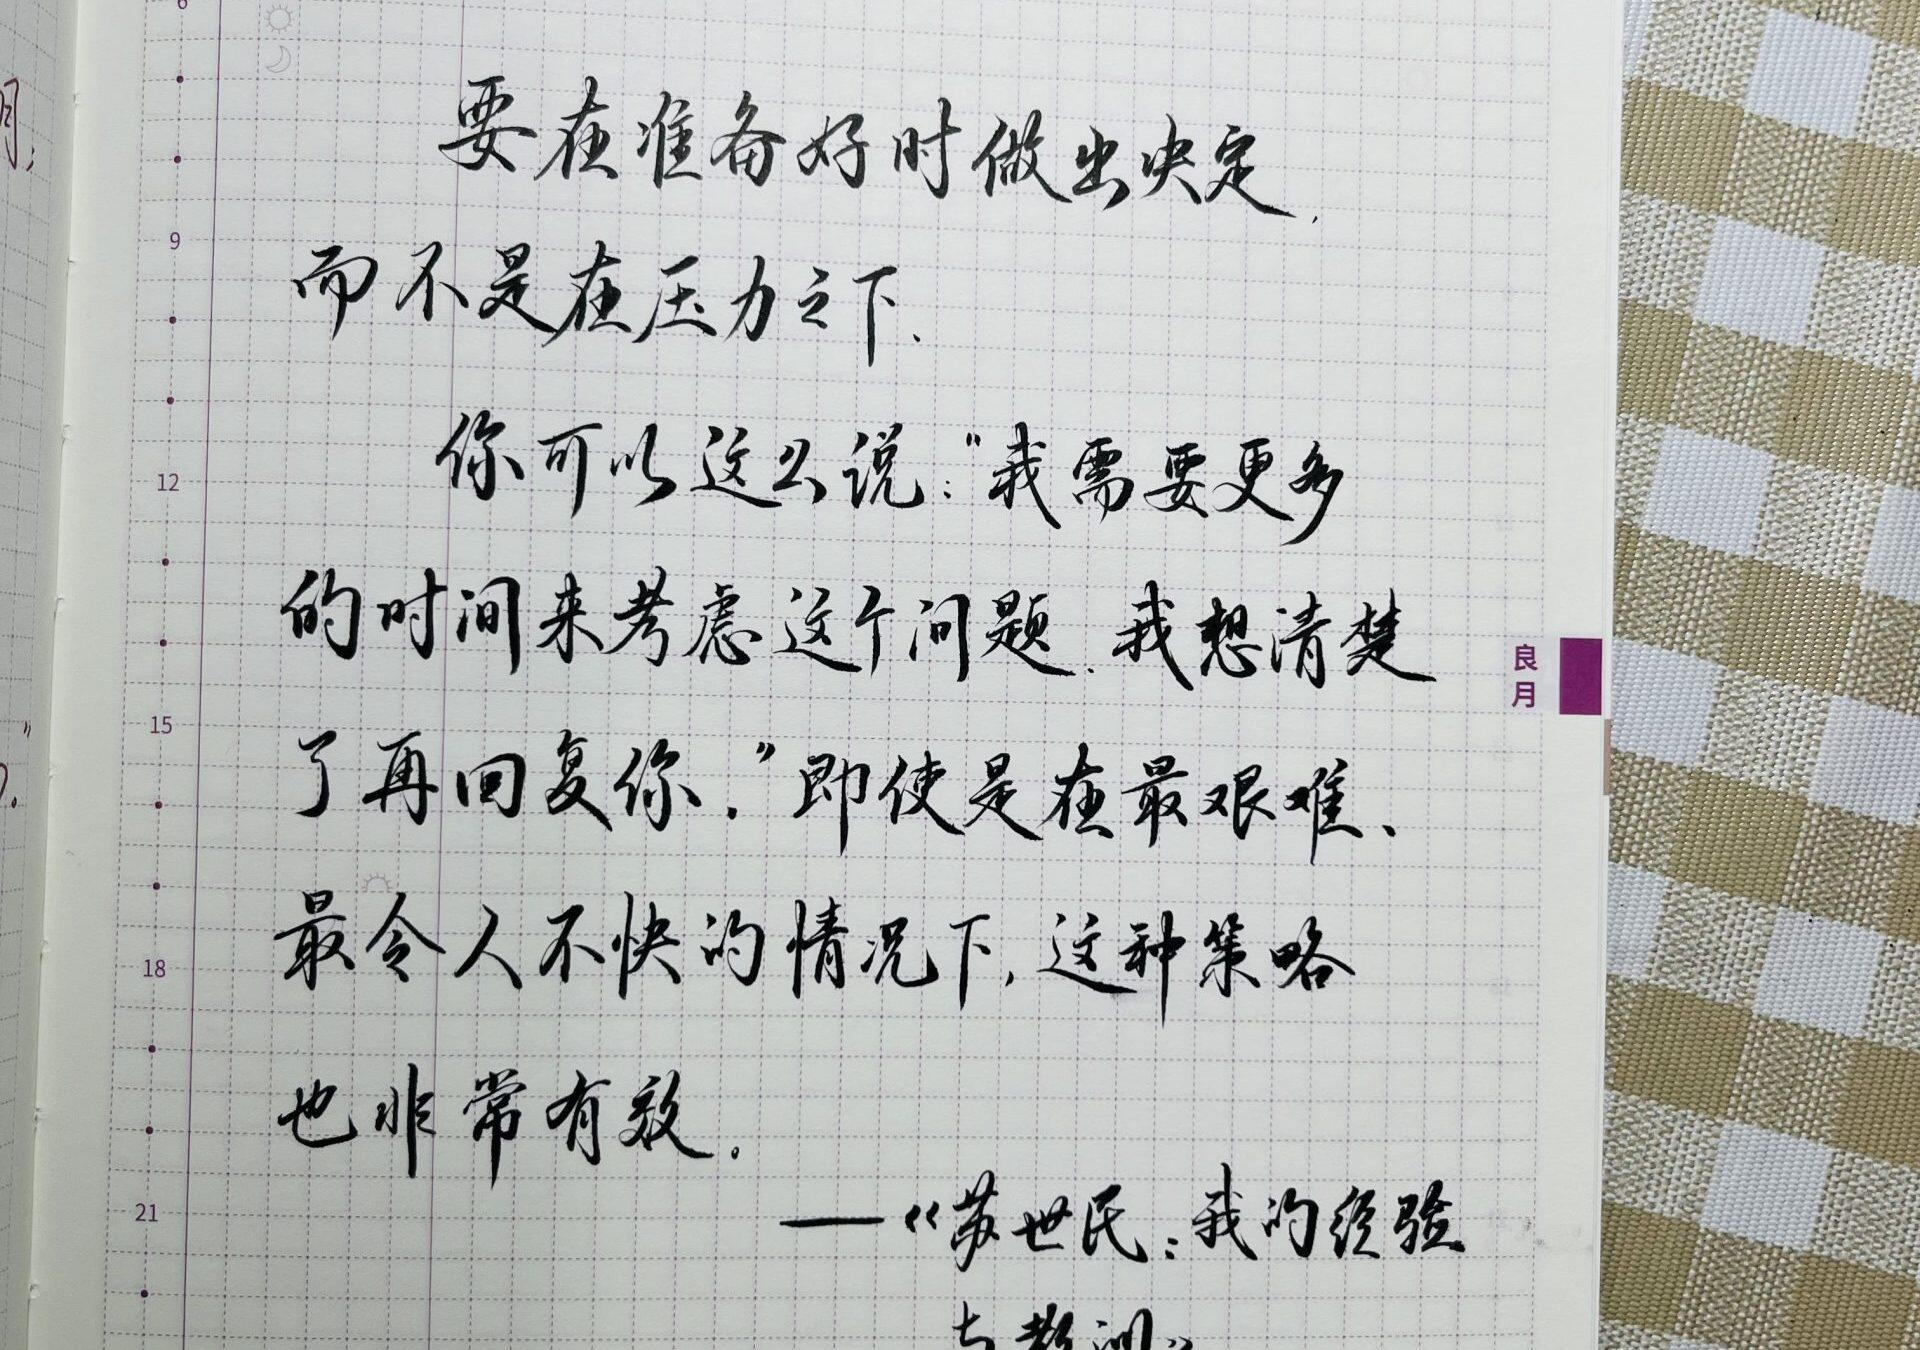 6
要在准备好时做出决定,
9
而不是在压力之下.
你可以这么说:"我需要更多
12
的时间来考虑这个问题.我想清楚
良月
15
了再回复你."即使是在最艰难、
最令人不快的情况下,这种策略
18
也非常有效.
——《苏世民:我的经验
21
与教训》